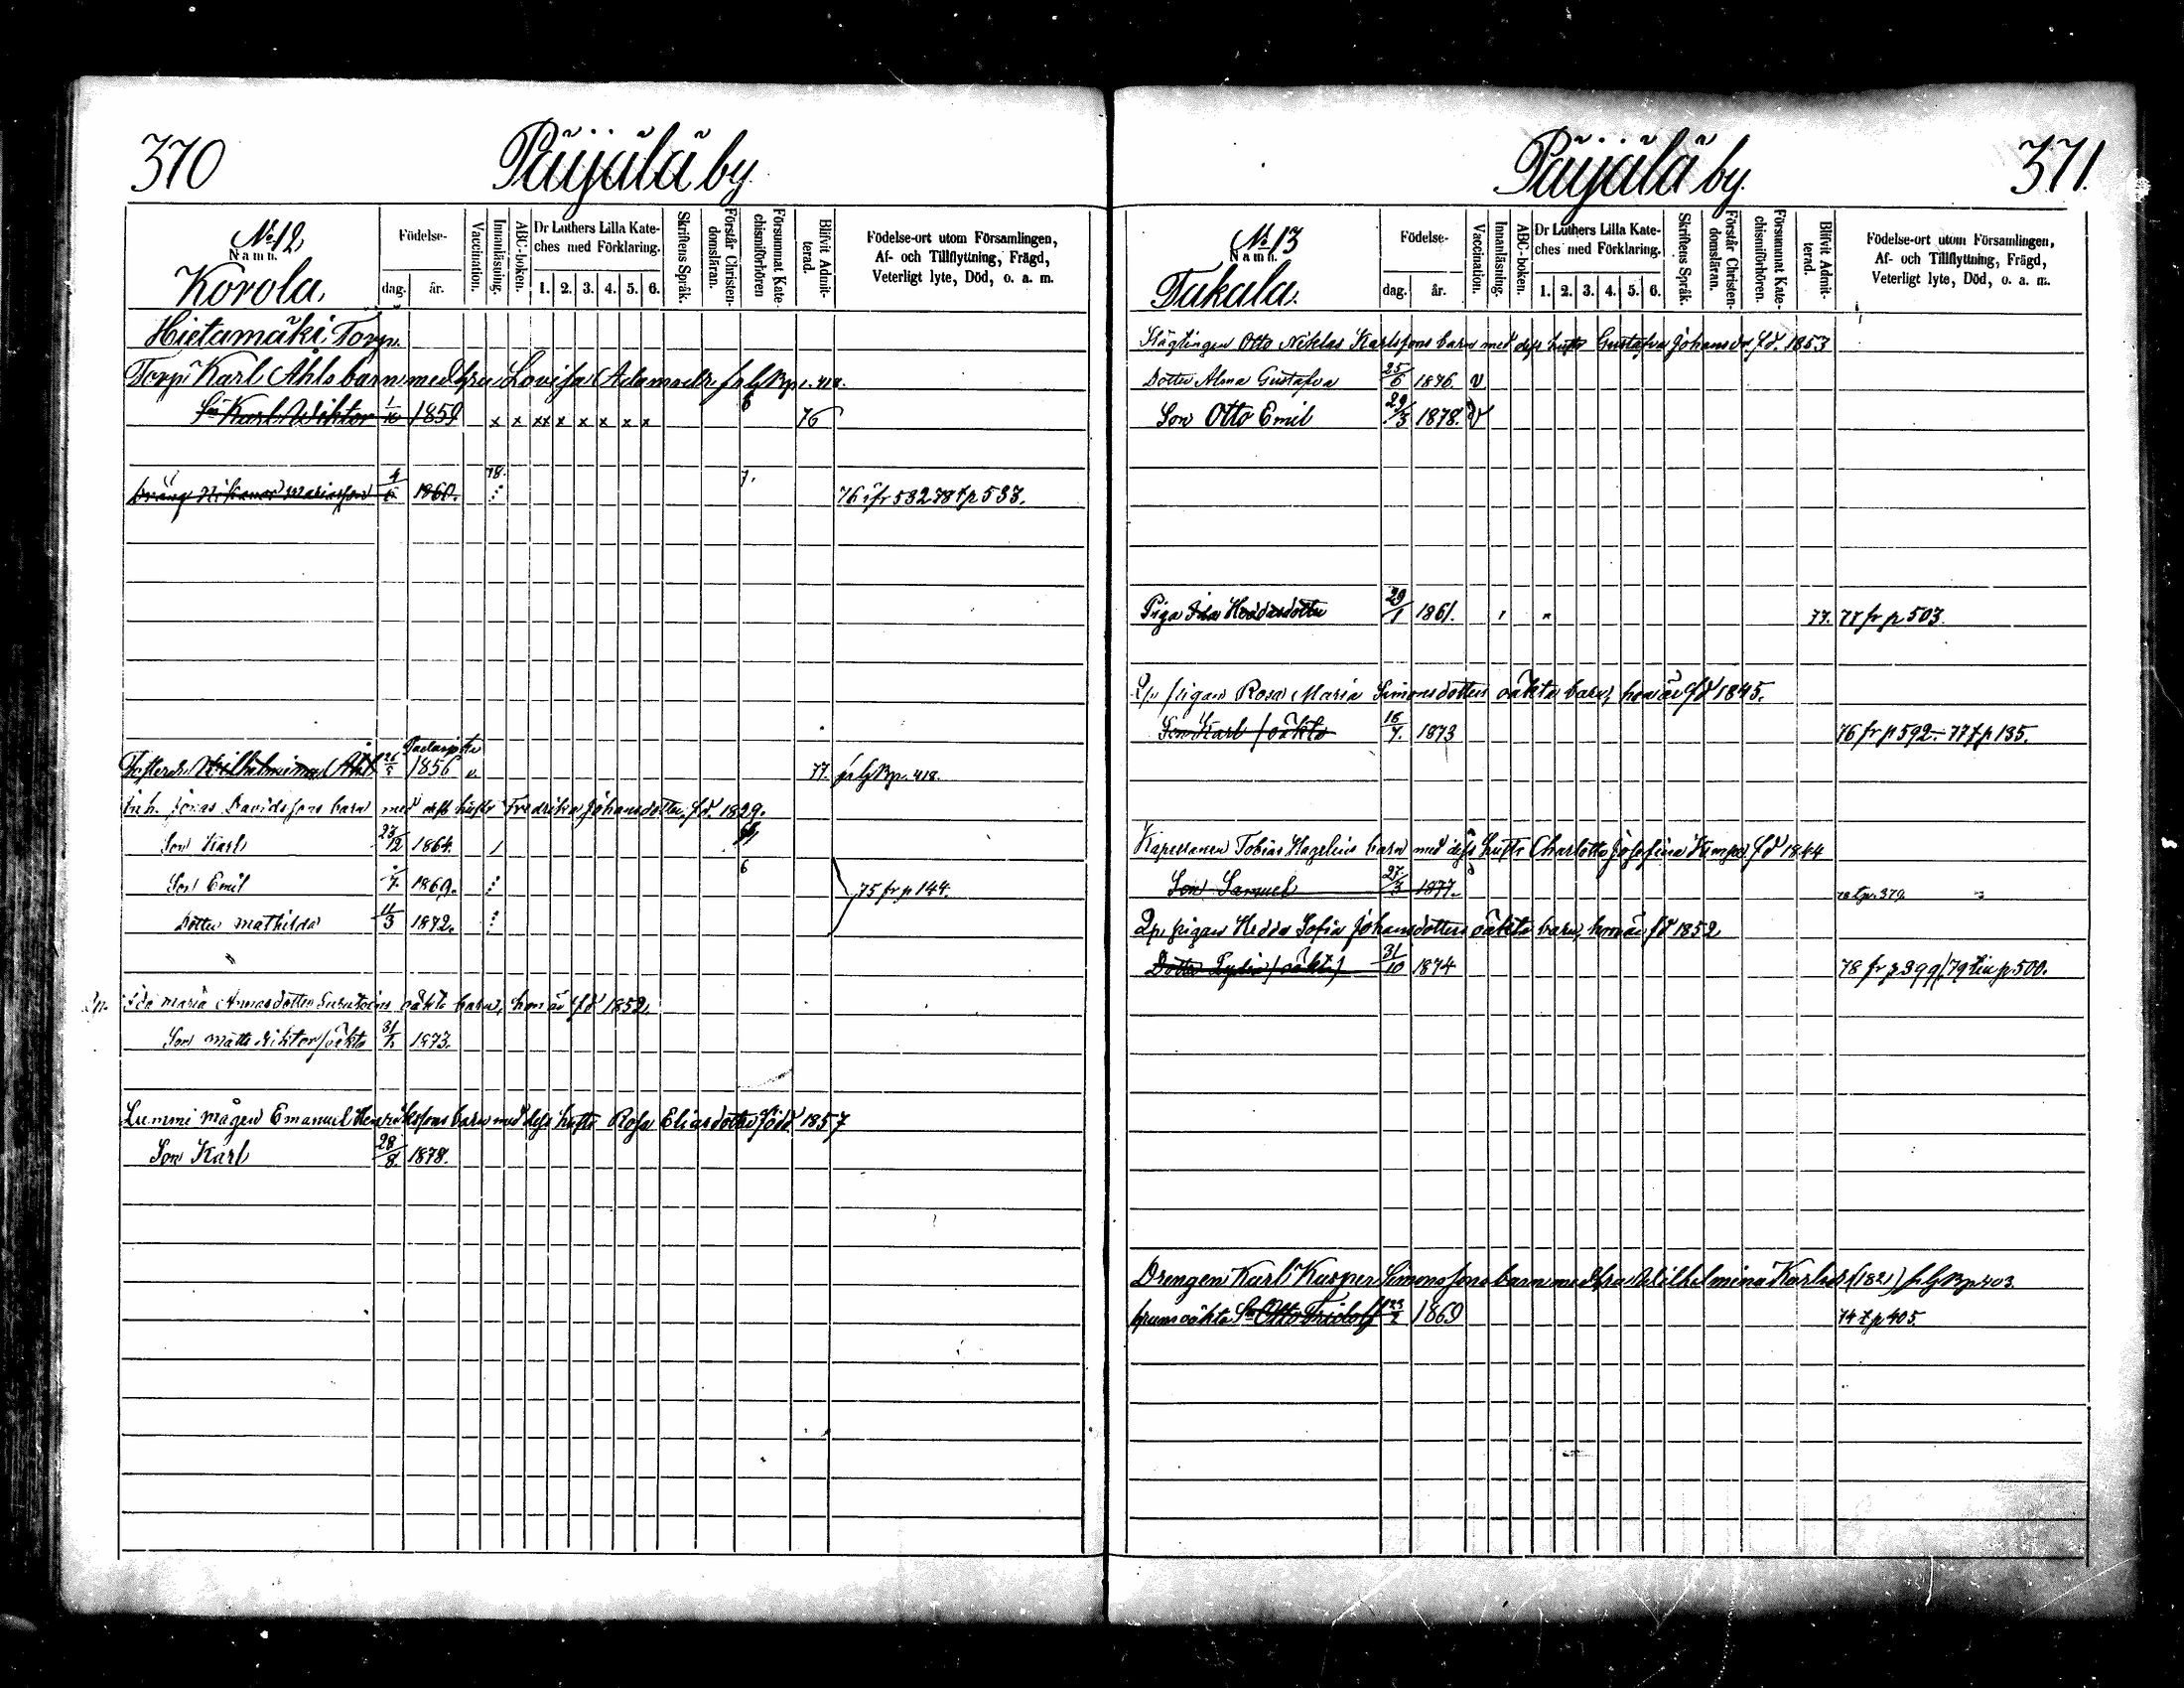 370
Päijälä by
No 12,
Namn.
Födelse-
dag.
år.
Vaccination.
Innanläsning.
ABC-boken.
Dr Luthers Lilla Kate-
ches med Förklaring.
1. 2. 3. 4. 5. 6.
Skriftens Språk.
Förstår Christen-
domsläran.
Försummat Kate-
chismiförhören
Blifvit Admit-
terad.
Födelse-ort utom Församlingen,
Af- och Tillflyttning, Frägd,
Veterligt lyte, Död, o. a. m.
Korola,
Hietamäki Torp.
Torp. Karl Åhls barn med hu Lovisa Adamsdr
Sn Karl Wiktor 1/10 1859 x x xx x x x x x 6 76
78. 7.
Dräng Nikanor Mariasson 4/6 1860. 76 ifr 532 78 t p 533.
Wilhelmina Åhl 1856 v. 77. p. 418.
Inh. Jonas Davidssons barn med dess hustr Fredrika Johansdotter fd. 1829.
Son Karl 23/12 1864.
Son Emil 1869. 6 75 fr p 144.
Dotter Mathilda 11/3 1872.
Qp. Ida Maria Annasdotter oäkta barn, hon är fd 1852,
Son Matts Viktor / oäkta 1873.
Lummi mågen Emanuel Henrikssons barn med dess hustr Rosa Eliasdotter född 1857
Son Karl 28/8. 1878.
Päijälä by.
371.
No 13
Namn.
Födelse-
dag.
år.
Vaccination.
Innanläsning.
ABC-boken.
Dr Luthers Lilla Kate-
ches med Förklaring.
1. 2. 3. 4. 5. 6.
Skriftens Språk.
Förstår Christen-
domsläran.
Försummat Kate-
chismiförhören.
Blifvit Admit-
terad.
Födelse-ort utom Församlingen,
Af- och Tillflyttning, Frägd,
Veterligt lyte, Död, o. a. m.
Takala.
Otto Niklas Karlssons barn med dess hustr Gustafva Johansdr fd. 1853
Dotter Alma Gustafva 25/6 1876 v
Son Otto Emil 29/3 1878. v
Piga Ida Heddasdotter 29/1 1861. 77. 77 fr p 503.
Qp. pigan Rosa Maria Simonsdotters oäkta barn, hon är fd 1845.
Son Karl / oäkta 16/7. 1873 76 fr p 592.- 77 t p 135.
Kapellanen Tobias Hagelins barn med dess hustr Charlotta Josefina fd 1844
Son Samuel 27/3 1877. 78 t p. 379.
Qp. pigan Hedda Sofia Johansdotters oäkta barn, hon är fd 1852
Dotter Lydia / oäkta / 31/10 1874 78 fr p 399/79 till p 500.
Drengen Karl Kasper Simonssons barn med hu Wilhelmina Karlsdr (1821) p 403.
hennes oäkta Sn Otto Fridolf 23/2 1869 74 t p 405.